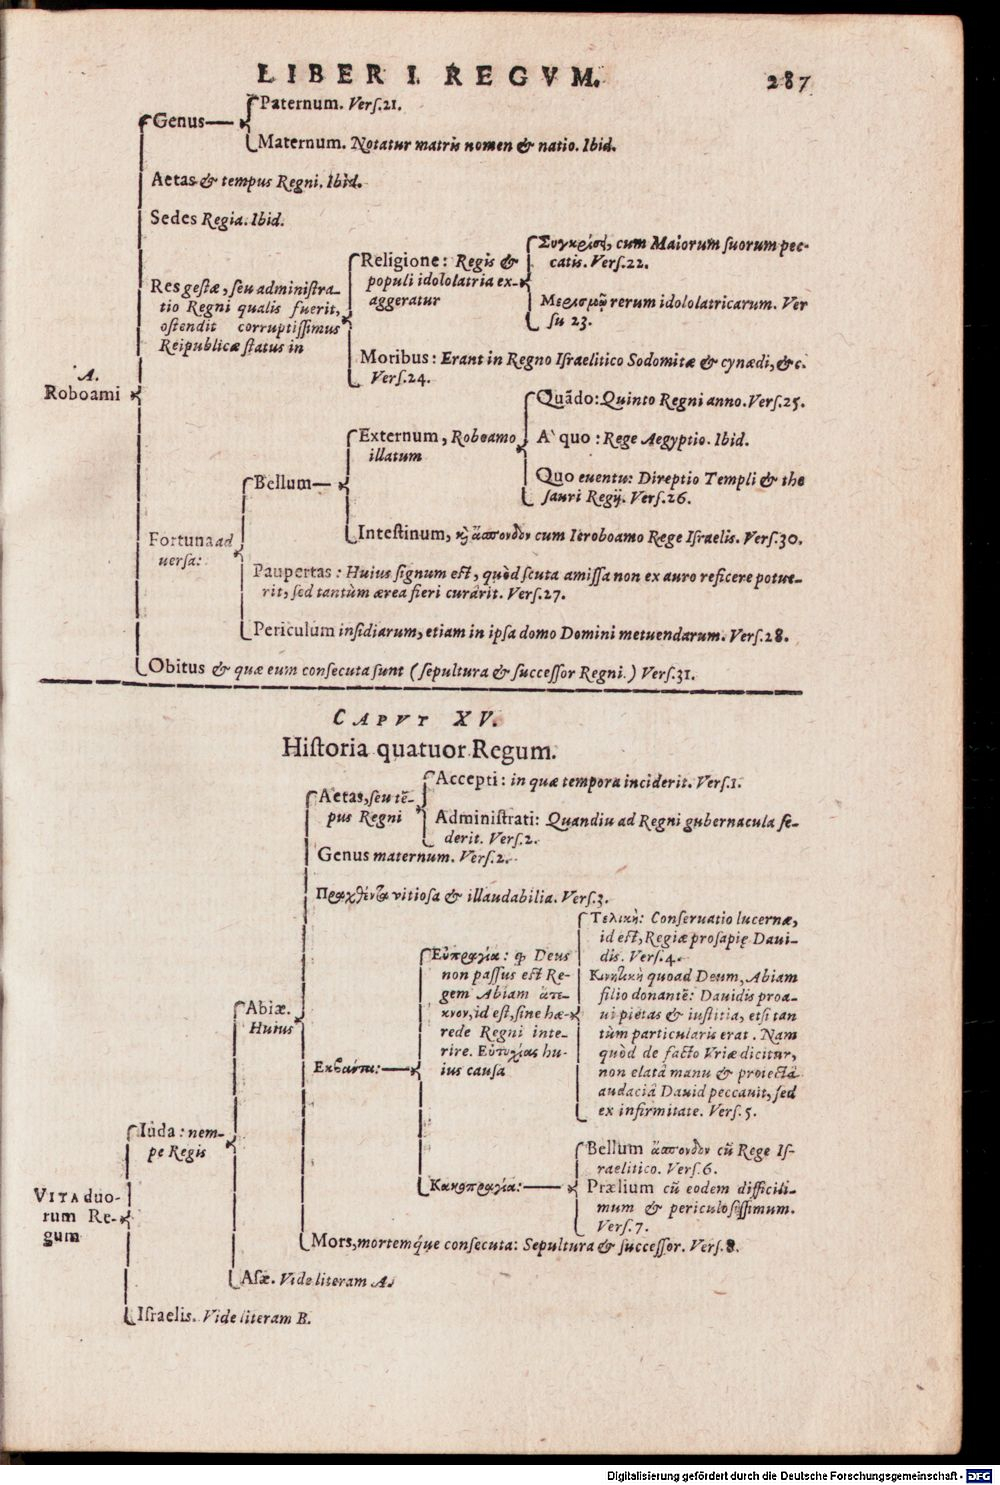 LIBER I. REGVM. 287
Genus
Paternum. Verſ.21.
Maternum. Notatur matris nomen & natio. Ibid.
Aetas & tempus Regni. Ibid.
Sedes Regia. Ibid.
Res geſtæ, ſeu adminiſtra-
tio Regni qualis fuerit,
oſtendit corruptiſſimus
Reipublicæ ſtatus in
Religione: Regis &
populi idololatria ex-
aggeratur
Συγκρίσει, cum Maiorum ſuorum pec-
catis. Verſ.22.
Μερισμῷ rerum idololatricarum. Ver
ſu 23.
Moribus: Erant in Regno Iſraelitico Sodomitæ & cynædi, &c.
Verſ.24.
A.
Roboami
Fortuna ad
uerſa:
Bellum
Externum, Roboamo
illatum
Quādo: Quinto Regni anno. Verſ.25.
A` quo: Rege Aegyptio. Ibid.
Quo euentu: Direptio Templi & the
ſauri Regij. Verſ.26.
Inteſtinum, κỳ ἄσπονδον cum Ieroboamo Rege Iſraelis. Verſ.30.
Paupertas: Huius ſignum eſt, quòd ſcuta amiſſa non ex auro reficere potue-
rit, ſed tantùm ærea fieri curârit. Verſ.27.
Periculum inſidiarum, etiam in ipſa domo Domini metuendarum. Verſ.28.
Obitus & quæ eum conſecuta ſunt (ſepultura & ſucceſſor Regni.) Verſ.31.
CAPVT XV.
Hiſtoria quatuor Regum.
Aetas, ſeu tē-
pus Regni
Accepti: in quæ tempora inciderit. Verſ.1.
Adminiſtrati: Quandiu ad Regni gubernacula ſe-
derit. Verſ.2.
Genus maternum. Verſ.2.
Πραχθέντα vitioſa & illaudabilia. Verſ.3.
Abiæ.
Huius
Εκβάντα:
Εὐπραγία: ꝙ Deus
non paſſus eſt Re-
gem Abiam ἄτε-
κνον, id eſt, ſine hæ-
rede Regni inte-
rire. Εὐτυχίας hu-
ius cauſa
Τελικὴ: Conſeruatio lucernæ,
id eſt, Regiæ proſapię Daui-
dis. Verſ.4.
Κινητικὴ quoad Deum, Abiam
filio donantē: Dauidis proa-
ui pietas & iuſtitia, etſi tan
tùm particularis erat. Nam
quòd de facto Vriæ dicitur,
non elatâ manu & proiectâ
audaciâ Dauid peccauit, ſed
ex infirmitate. Verſ.5.
Κακοπραγία:
Bellum ἄσπονδον cū Rege Iſ-
raelitico. Verſ.6.
Prælium cū eodem difficili-
mum & periculoſiſſimum.
Verſ.7.
Mors, mortemq́ue conſecuta: Sepultura & ſucceſſor. Verſ.8.
VITA duo-
rum Re-
gum
Iuda: nem-
pe Regis
Aſæ. Vide literam A.
Iſraelis. Vide literam B.
Digitalisierung gefördert durch die Deutsche Forschungsgemeinschaft - DFG